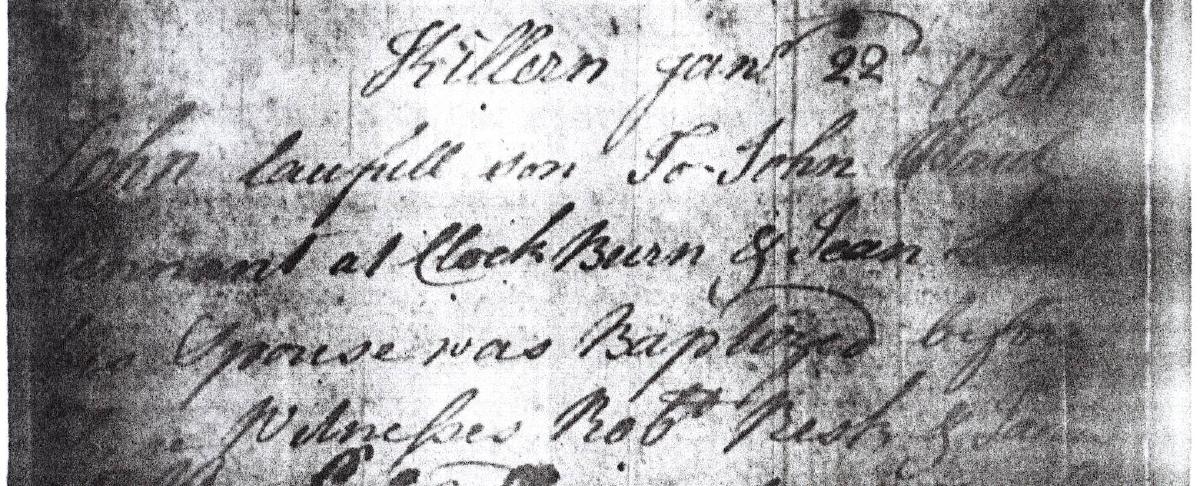 Killern janr 22d 1761
John laufull son To John
Tennent at Clock Burn & Jean
his Spouse was Baptized before
Witnesses Robt Resk & Jam